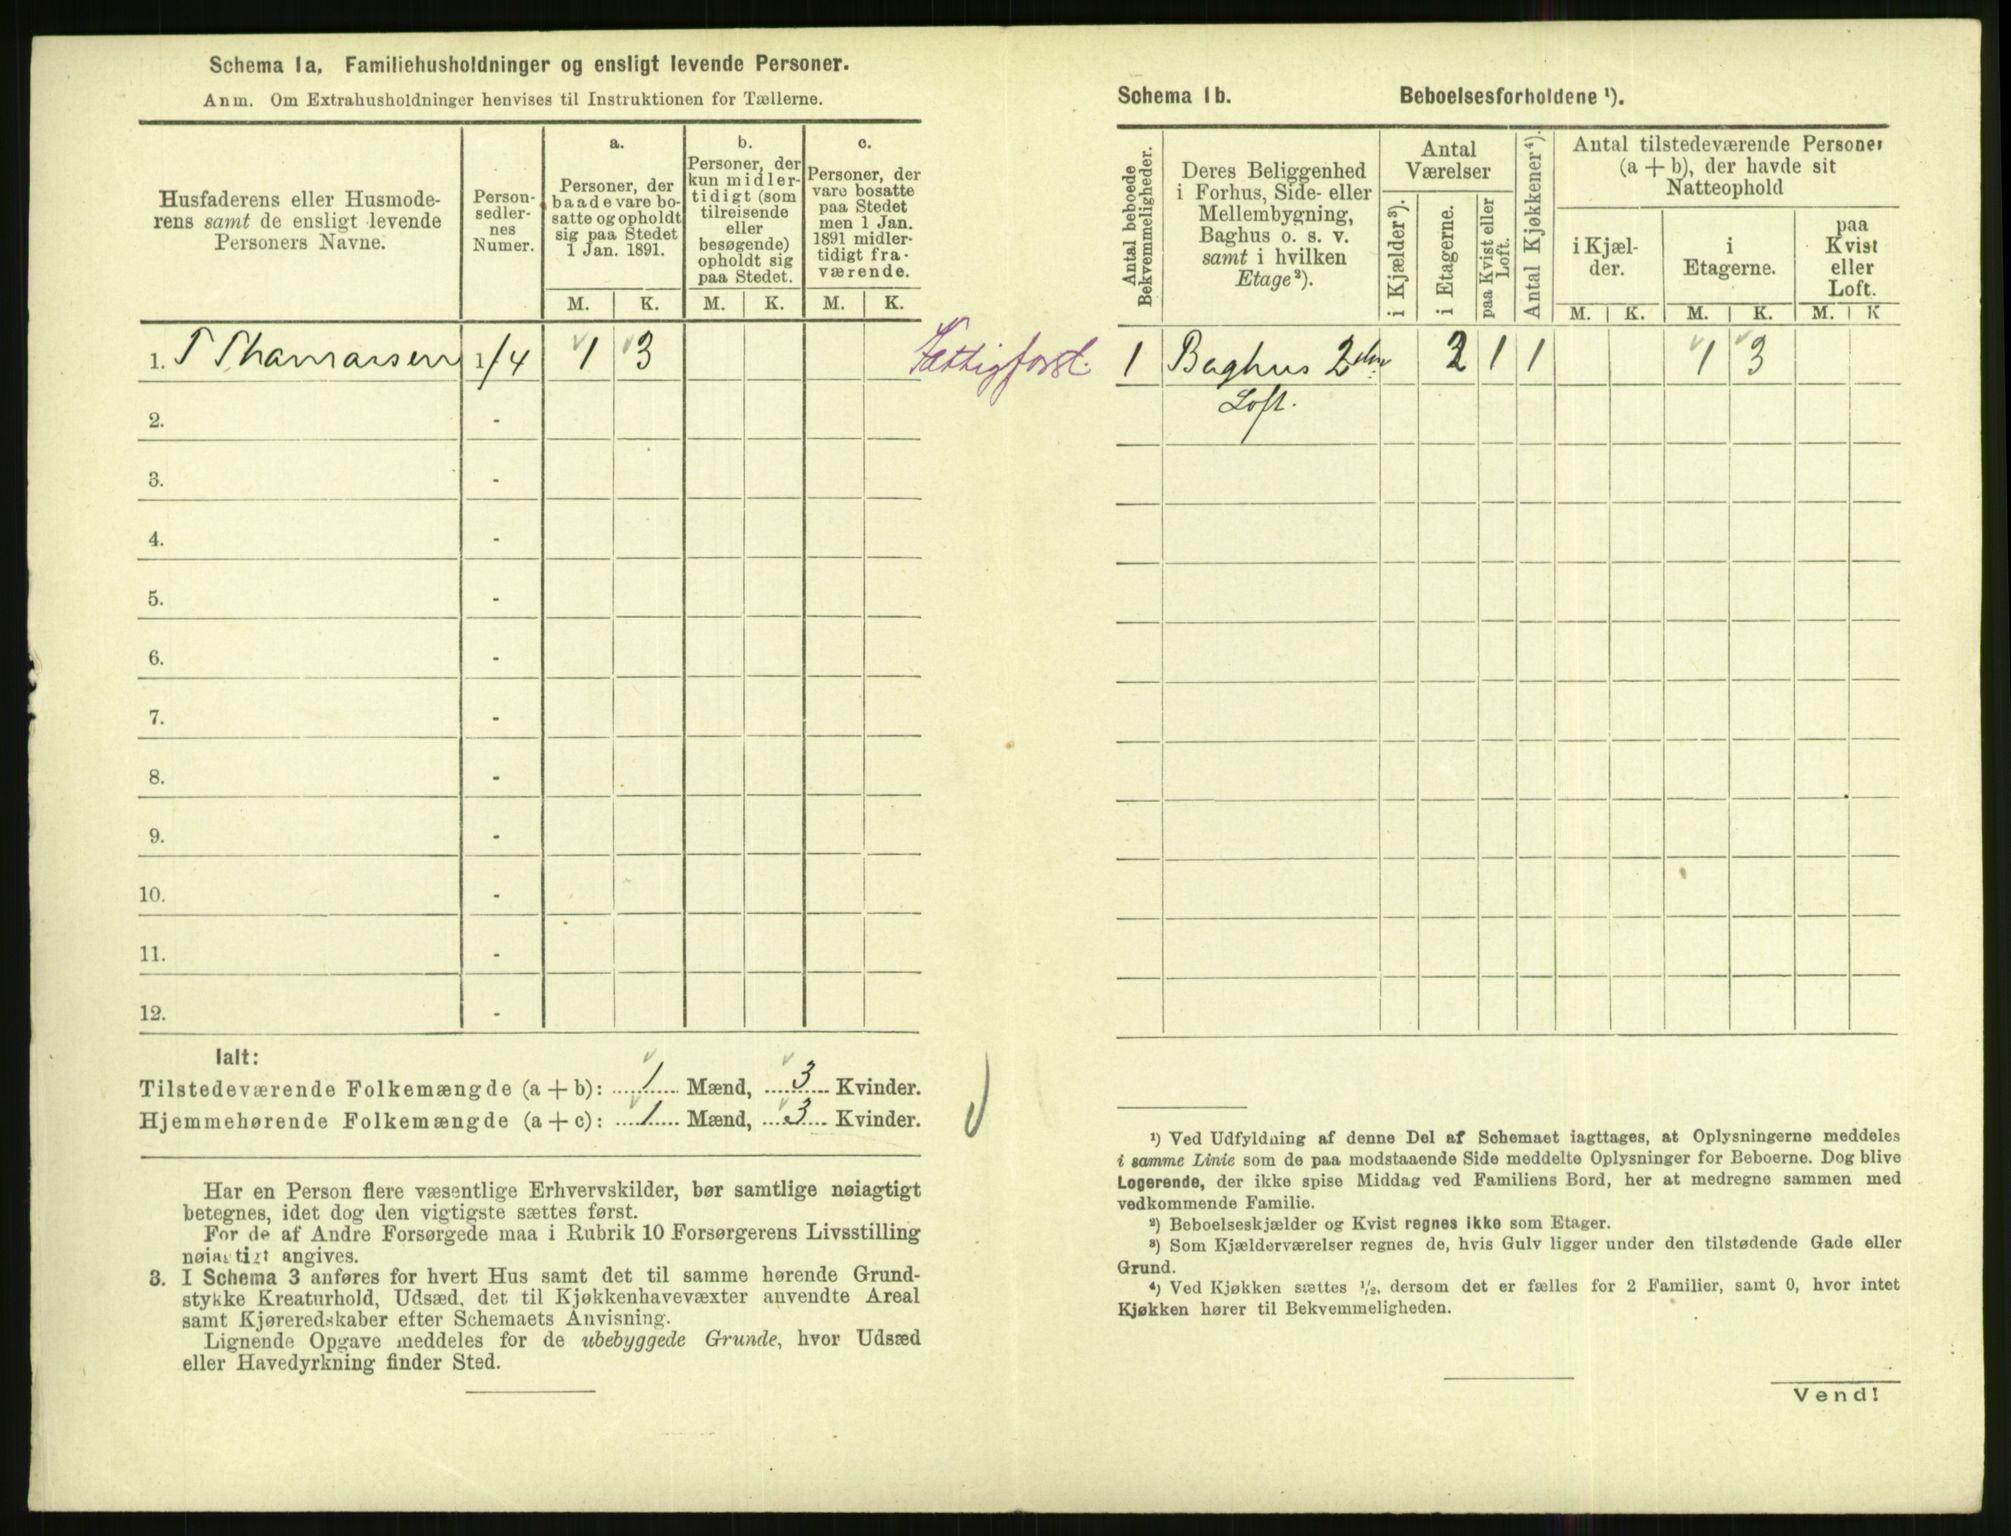 Schema 1a. Familiehusholdninger og ensligt levende Personer.
Anm. Om Extrahusholdninger henvises til Instruktionen for Tællerne.
Husfaderens eller Husmode-
rens samt de ensligt levende
Personers Navne.
Person-
sedler-
nes
Numer.
a.
Personer, der
baade vare bo-
satte og opholdt
sig paa Stedet
1 Jan. 1891.
b.
Personer, der
kun midler-
tidigt (som
tilreisende
eller
besøgende)
opholdt sig
paa Stedet.
c.
Personer, der
vare bosatte
paa Stedet
men 1 Jan.
1891 midler-
tidigt fra-
værende.
M. K. M. K. M. K.
1. T Thomassen 1/4 1 3 Fattigforst.
2. -
3. -
4. -
5. -
6. -
7. -
8. -
9. -
10. -
11. -
12. -
Ialt:
Tilstedeværende Folkemængde (a + b): 1 Mænd, 3 Kvinder.
Hjemmehørende Folkemængde (a + c): 1 Mænd, 3 Kvinder.
Har en Person flere væsentlige Erhvervskilder, bør samtlige nøiagtigt
betegnes, idet dog den vigtigste sættes først.
For de af Andre Forsørgede maa i Rubrik 10 Forsørgerens Livsstilling
nøiagtigt angives.
3. I Schema 3 anføres for hvert Hus samt det til samme hørende Grund-
stykke Kreaturhold, Udsæd, det til Kjøkkenhavevæxter anvendte Areal
samt Kjøreredskaber efter Schemaets Anvisning.
Lignende Opgave meddeles for de ubebyggede Grunde, hvor Udsæd
eller Havedyrkning finder Sted.
Schema 1b. Beboelsesforholdene ¹).
Antal beboede
Bekvemmeligheder.
Deres Beliggenhed
i Forhus, Side- eller
Mellembygning,
Baghus o. s. v.
samt i hvilken
Etage²).
Antal
Værelser
i Kjælder³).
i Etagerne.
paa Kvist eller
Loft.
Antal Kjøkkener⁴).
Antal tilstedeværende Personer
(a + b), der havde sit
Natteophold
i Kjæl-
der.
i
Etagerne.
paa
Kvist
eller
Loft.
M. K. M. K. M. K
1 Baghus 2den 2 1 1 1 3
Loft.
¹) Ved Udfyldning af denne Del af Schemaet iagttages, at Oplysningerne meddeles
i samme Linie som de paa modstaaende Side meddelte Oplysninger for Beboerne. Dog blive
Logerende, der ikke spise Middag ved Familiens Bord, her at medregne sammen med
vedkommende Familie.
²) Beboelseskjælder og Kvist regnes ikke som Etager.
³) Som Kjælderværelser regnes de, hvis Gulv ligger under den tilstødende Gade eller
Grund.
⁴) Ved Kjøkken sættes ½, dersom det er fælles for 2 Familier, samt 0, hvor intet
Kjøkken hører til Bekvemmeligheden.
Vend!